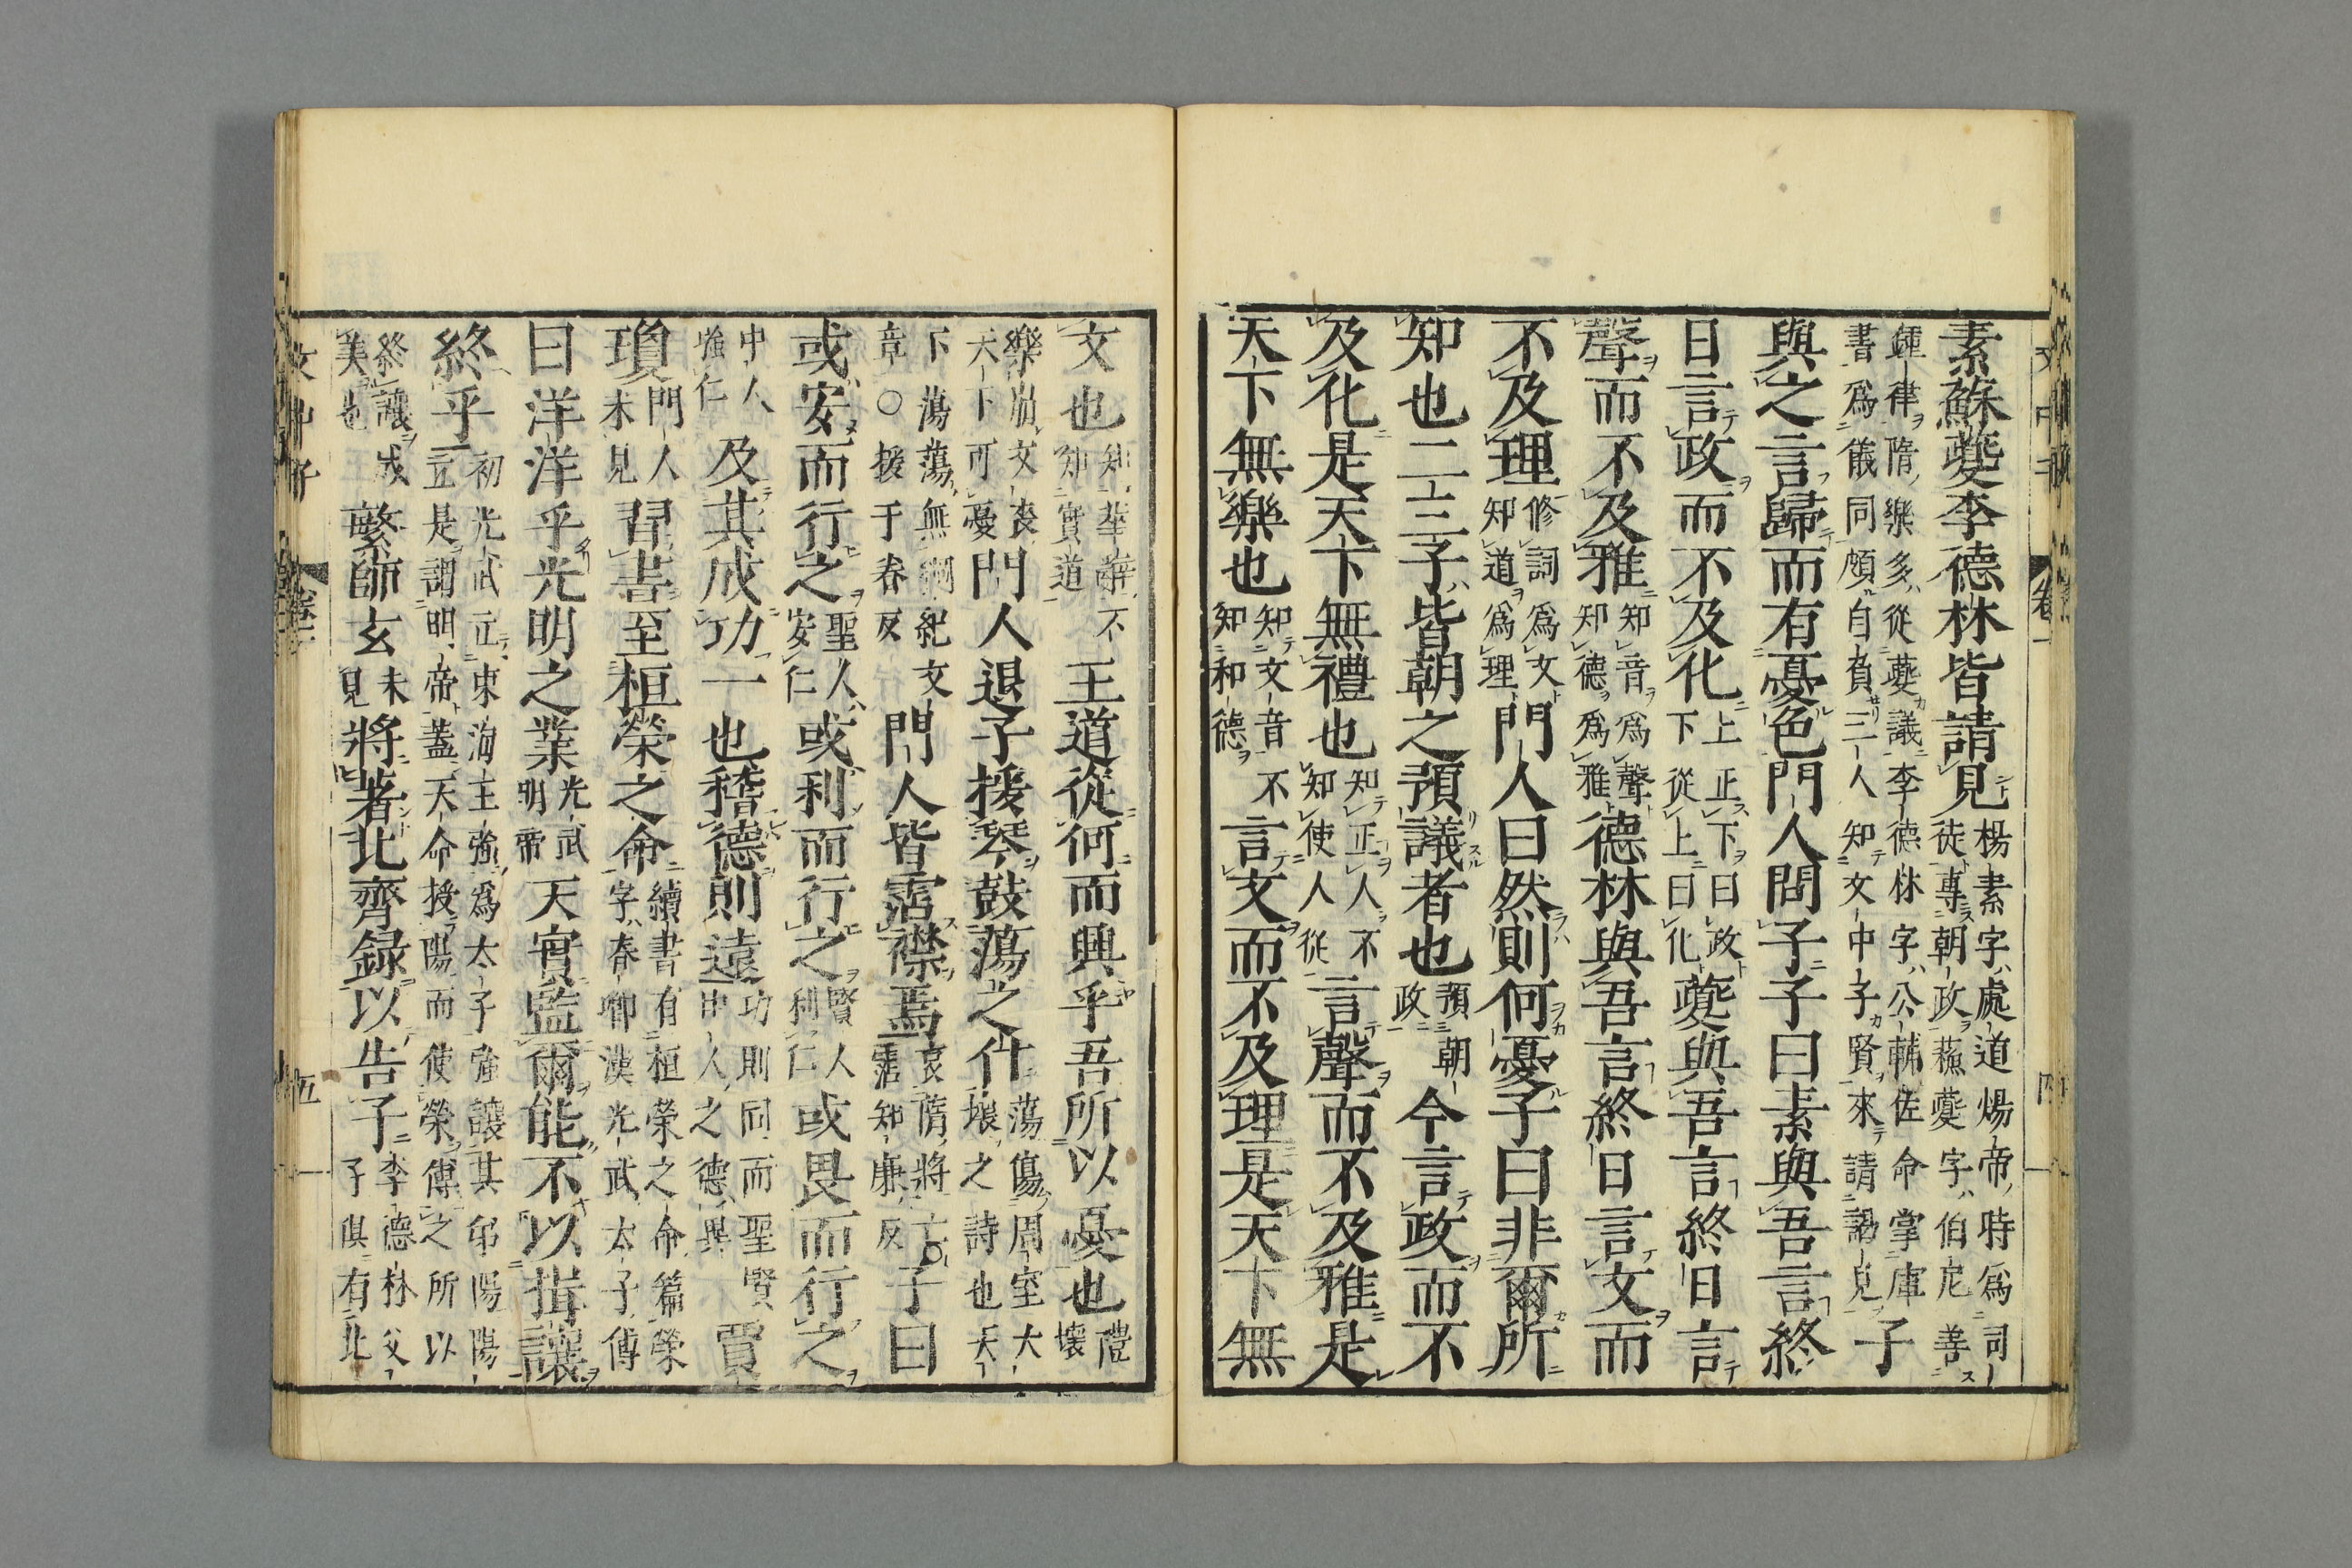 素蘇夔李德林皆請見楊素字處道煬帝時爲司徒專朝政蘇夔字伯尼善
鍾律隋樂多從夔議李德林字公輔佐命掌庫書爲儀同頗自負三人知文中子賢來請謁見子
與之言歸而有憂色門人問子子曰素與吾言終
日言政而不及化上正下曰政下從上曰化夔與吾言終日言
聲而不及雅知音爲聲知德爲雅德林與吾言終日言文而
不及理修詞爲文知道爲理門人曰然則何憂子曰非爾所
知也二三子皆朝之預議者也預朝政今言政而不
及化是天下無禮也知正人不知使人從言聲而不及雅是
天下無樂也知文音不知和德言文而不及理是天下無
文也知華辭不知實道王道從何而興乎吾所以憂也禮壞
樂崩文喪天下可憂門人退子援琴鼓蕩之什蕩傷周室大壞之詩也天
下蕩蕩無綱紀文章○援于眷反門人皆霑襟焉哀隋將亡○霑知廉反子曰
或安而行之聖人安仁或利而行之賢人利仁或畏而行之
中人強仁及其成功一也稽德則遠功則同而聖賢中人之德異賈
瓊門人未見習書至桓榮之命續書有桓榮之命篇榮字春卿漢光武太子傅
曰洋洋乎光明之業光武明帝天實監爾能不以揖讓
終乎初光武立東海王強爲太子強讓其弟陽陽立是謂明帝蓋天命授陽而使榮傅之所以
終讓成美也繁師玄未見將著北齊錄以告子李德林父子俱有北
文中子 卷一 四
文中子 卷一 五